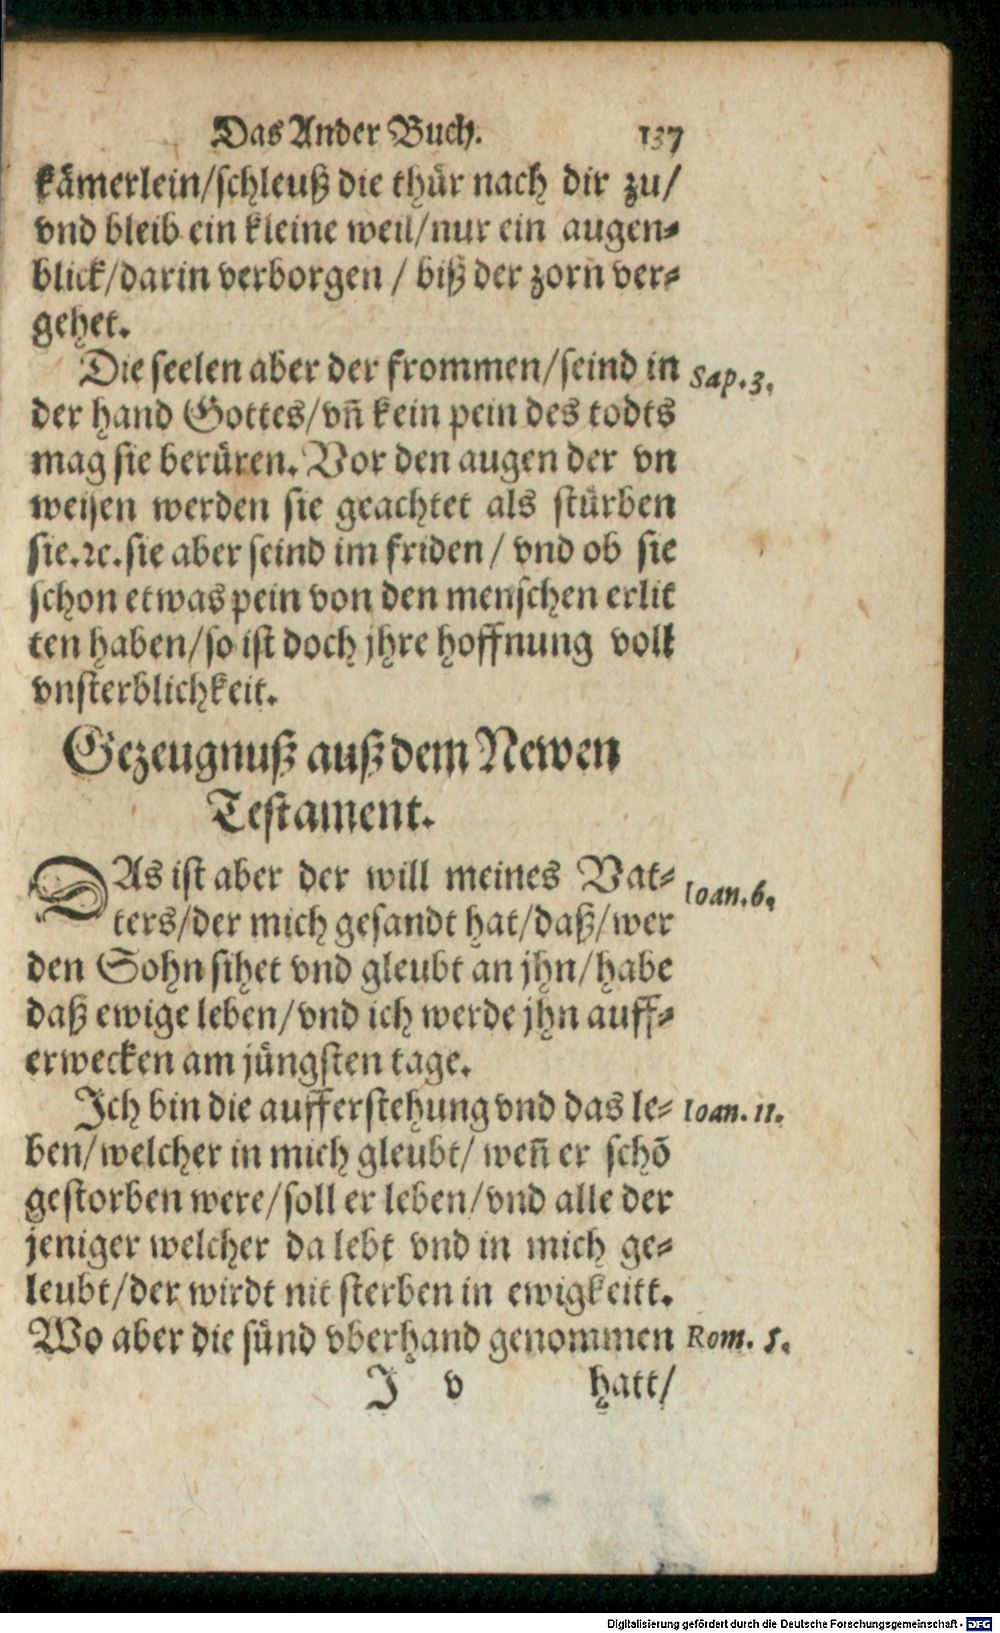 Das Ander Buch. 137
kämerlein/schleuß die thür nach dir zu/
vnd bleib ein kleine weil/nur ein augen-
blick/darin verborgen / biß der zorn ver-
gehet.
Die seelen aber der frommen/seind in Sap.3.
der hand Gottes/vn̄ kein pein des todts
mag sie berüren. Vor den augen der vn
weisen werden sie geachtet als stürben
sie.ꝛc.sie aber seind im friden / vnd ob sie
schon etwas pein von den menschen erlit
ten haben/so ist doch jhre hoffnung voll
vnsterblichkeit.
Gezeugnuß auß dem Newen
Testament.
DAs ist aber der will meines Vat- Ioan.6.
ters/der mich gesandt hat/daß/wer
den Sohn sihet vnd gleubt an jhn/habe
daß ewige leben/vnd ich werde jhn auff-
erwecken am jüngsten tage.
Ich bin die aufferstehung vnd das le- Ioan. 11.
ben/welcher in mich gleubt/ wen̄ er schō
gestorben were/soll er leben/vnd alle der
jeniger welcher da lebt vnd in mich ge-
leubt/der wirdt nit sterben in ewigkeitt.
Wo aber die sünd vberhand genommen Rom. 5.
J v hatt/
Digitalisierung gefördert durch die Deutsche Forschungsgemeinschaft - DFG